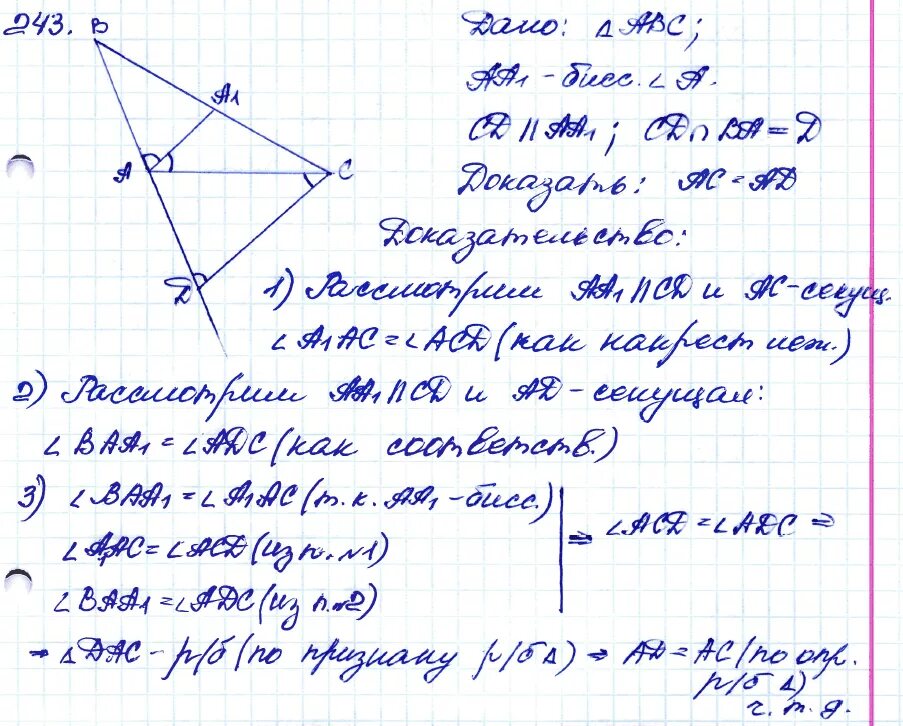 243.
B
A1
A
C
D
Дано: △ABC;
AA1 - бисс. ∠A.
CD || AA1; CD ∩ BA = D
Доказать: AC = AD
Доказательство:
1) Рассмотрим AA1 || CD и AC - секущ.
∠A1AC = ∠ACD (как накрест леж.)
2) Рассмотрим AA1 || CD и AD - секущая:
∠BAA1 = ∠ADC (как соответств.)
3) ∠BAA1 = ∠A1AC (т.к. AA1 - бисс.)
∠A1AC = ∠ACD (из п. №1)
∠BAA1 = ∠ADC (из п. №2)
⇒ ∠ACD = ∠ADC ⇒
⇒ △DAC - р/б (по признаку р/б △) ⇒ AD = AC (по опр.
р/б △)
ч.т.д.